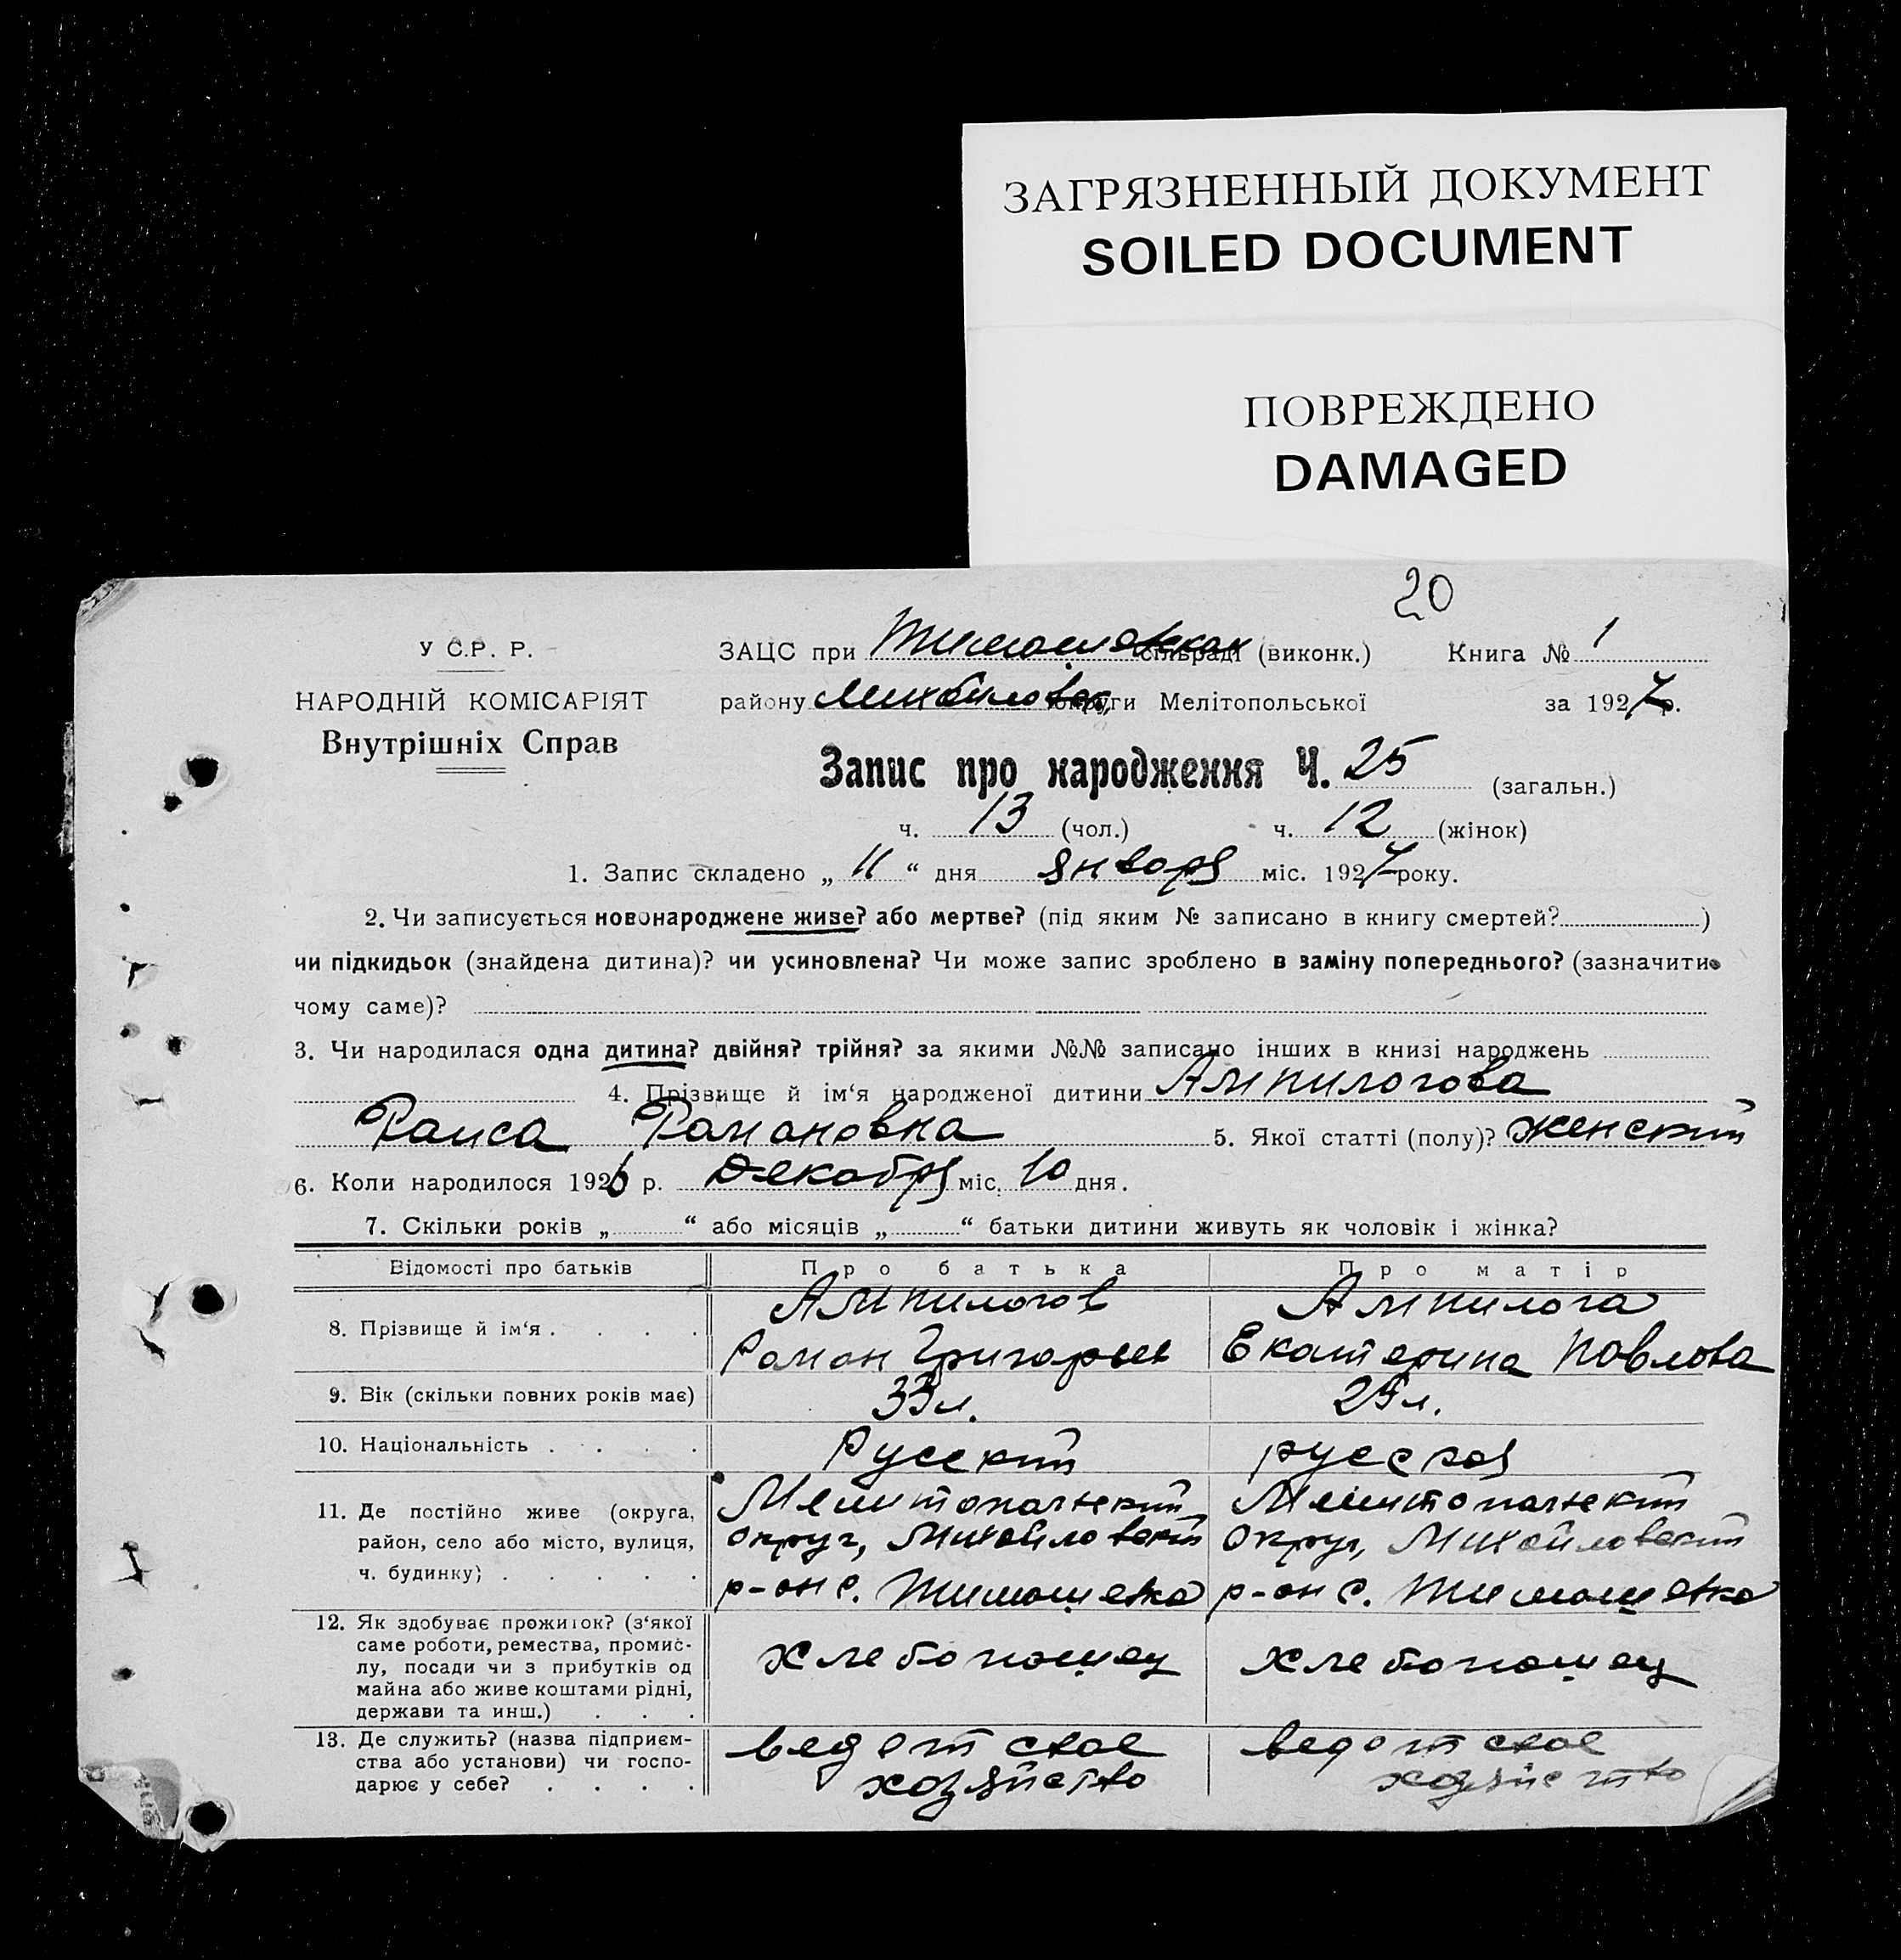 ЗАГРЯЗНЕННЫЙ ДОКУМЕНТ
SOILED DOCUMENT
ПОВРЕЖДЕНО
DAMAGED
20
У С.Р. Р.
ЗАЦС при Тимошовская сільраді (виконк.) Книга № 1
НАРОДНІЙ КОМІСАРІЯТ
району Михайловск округи Мелітопольської за 1927 р.
Внутрішніх Справ
Запис про народження Ч. 25 (загальн.)
ч. 13 (чол.) ч. 12 (жінок)
1. Запис складено „ 11 “ дня января міс. 1927 року.
2. Чи записується новонароджене живе? або мертве? (під яким № записано в книгу смертей? )
чи підкидьок (знайдена дитина)? чи усиновлена? Чи може запис зроблено в заміну попереднього? (зазначити
чому саме)?
3. Чи народилася одна дитина? двійня? трійня? за якими №№ записано інших в книзі народжень
4. Прізвище й ім‘я народженої дитини Ампилогова
Раиса Романовна 5. Якої статті (полу)? женский
6. Коли народилося 1926 р. Декабря міс. 10 дня.
7. Скільки років „ “ або місяців „ “ батьки дитини живуть як чоловік і жінка?
Відомості про батьків Про батька Про матір
8. Прізвище й ім‘я . . . . Ампилогов Ампилога
Роман Григорьев Екатерина Павлова
9. Вік (скільки повних років має) 33 л. 29 л.
10. Національність . . . . Русский русская
11. Де постійно живе (округа, Мелитопольский Мелитопольский
район, село або місто, вулиця, округ, Михайловский округ, Михайловский
ч. будинку) . . . . . р-он с. Тимошевка р-он с. Тимошевка
12. Як здобуває прожиток? (з‘якої
саме роботи, ремества, промис-
лу, посади чи з прибутків од хлебопашец хлебопашец
майна або живе коштами рідні,
держави та инш.) . . .
13. Де служить? (назва підприєм-
ства або установи) чи госпо-
дарює у себе? . . . . хозяйство хозяйство